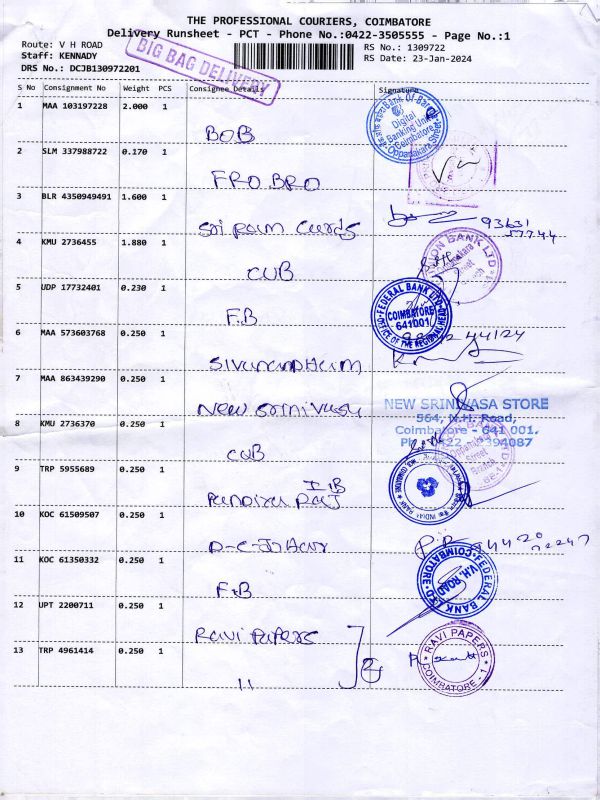 THE PROFESSIONAL COURIERS, COIMBATORE
Delivery Runsheet - PCT - Phone No.:0422-3505555 - Page No.:1
Route: V H ROAD
RS No.: 1309722
Staff: KENNADY
RS Date: 23-Jan-2024
DRS No.: DCJB130972201
BIG BAG DELIVERY
S No Consignment No Weight PCS Consignee Details Signature
1 MAA 103197228 2.000 1
BOB
Bank Of Baroda
Digital
Banking Unit
Coimbatore
Oppanakara Street
2 SLM 337988722 0.170 1
FRO BRO
3 BLR 4350949491 1.600 1
Sri Ram Curds
93631
57744
4 KMU 2736455 1.880 1
CUB
UNION BANK LTD
Street
Branch
5 UDP 17732401 0.230 1
F.B
FEDERAL BANK LTD
COIMBATORE
641001
OFFICE OF THE REGIONAL HEAD
6 MAA 573603768 0.250 1
7 MAA 863439290 0.250 1
New Srinivasa
NEW SRINIVASA STORE
564, N.H. Road,
Coimbatore - 641 001.
8 KMU 2736370 0.250 1
CUB
Oppanakara
Street
Branch
9 TRP 5955689 0.250 1
I.B
INDIAN BANK
10 KOC 61509507 0.250 1
11 KOC 61350332 0.250 1
F.B
FEDERAL BANK LTD
V.H. ROAD
COIMBATORE
12 UPT 2200711 0.250 1
Ravi Papers
RAVI PAPERS
COIMBATORE - 1
13 TRP 4961414 0.250 1
11
2